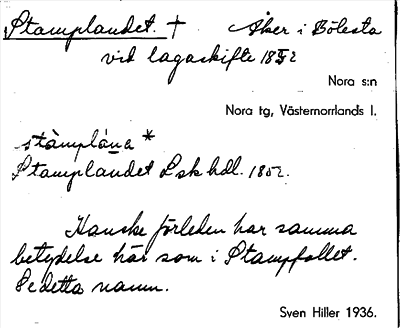 Stamplandet. † Åker i Bölesta
vid lagaskifte 1852
Nora s:n
Nora tg, Västernorrlands l.
stàmplána *
Stamplandet Lskhdl. 1852.
Kanske förleden har samma
betydelse här som i Stampfallet.
Se detta namn.
Sven Hiller 1936.